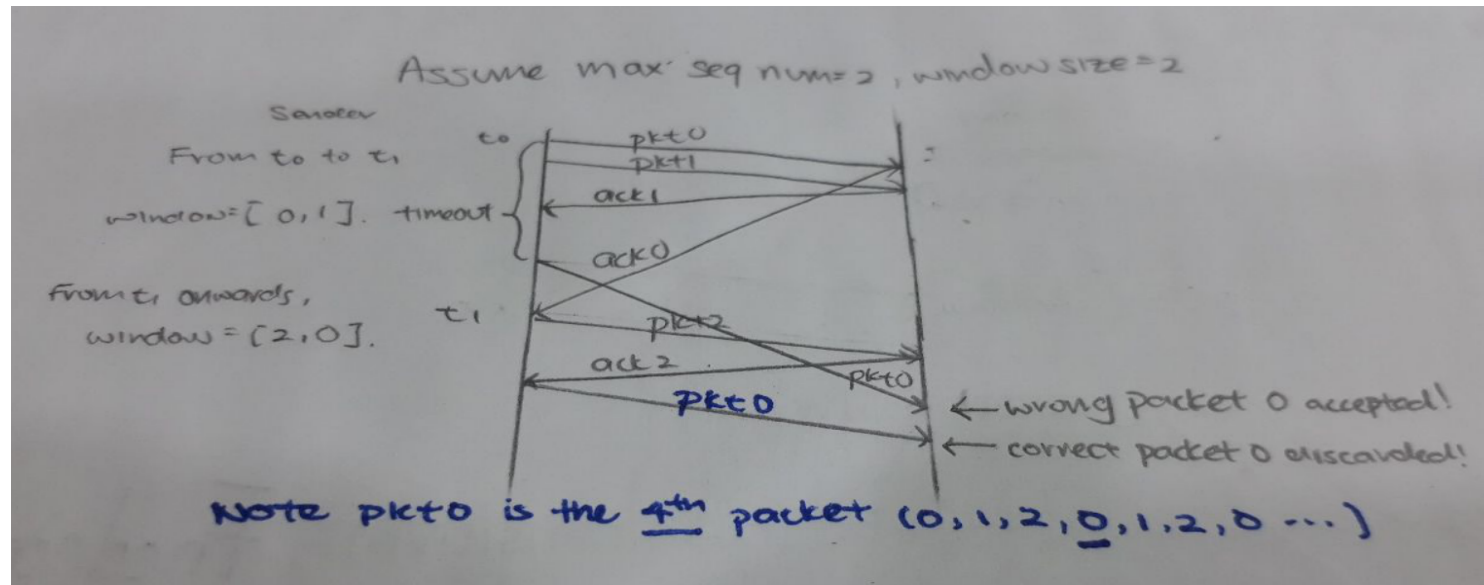 Assume max seq num=2, window size=2
Sender
From t0 to t1
window=[0,1].
timeout
From t1 onwards,
window=[2,0].
t0
pkt0
pkt1
:
ack1
ack0
t1
pkt2
ack2
pkt0
pkt0
← wrong packet 0 accepted!
← correct packet 0 discarded!
Note pkt0 is the 4th packet (0,1,2,0,1,2,0 ...)